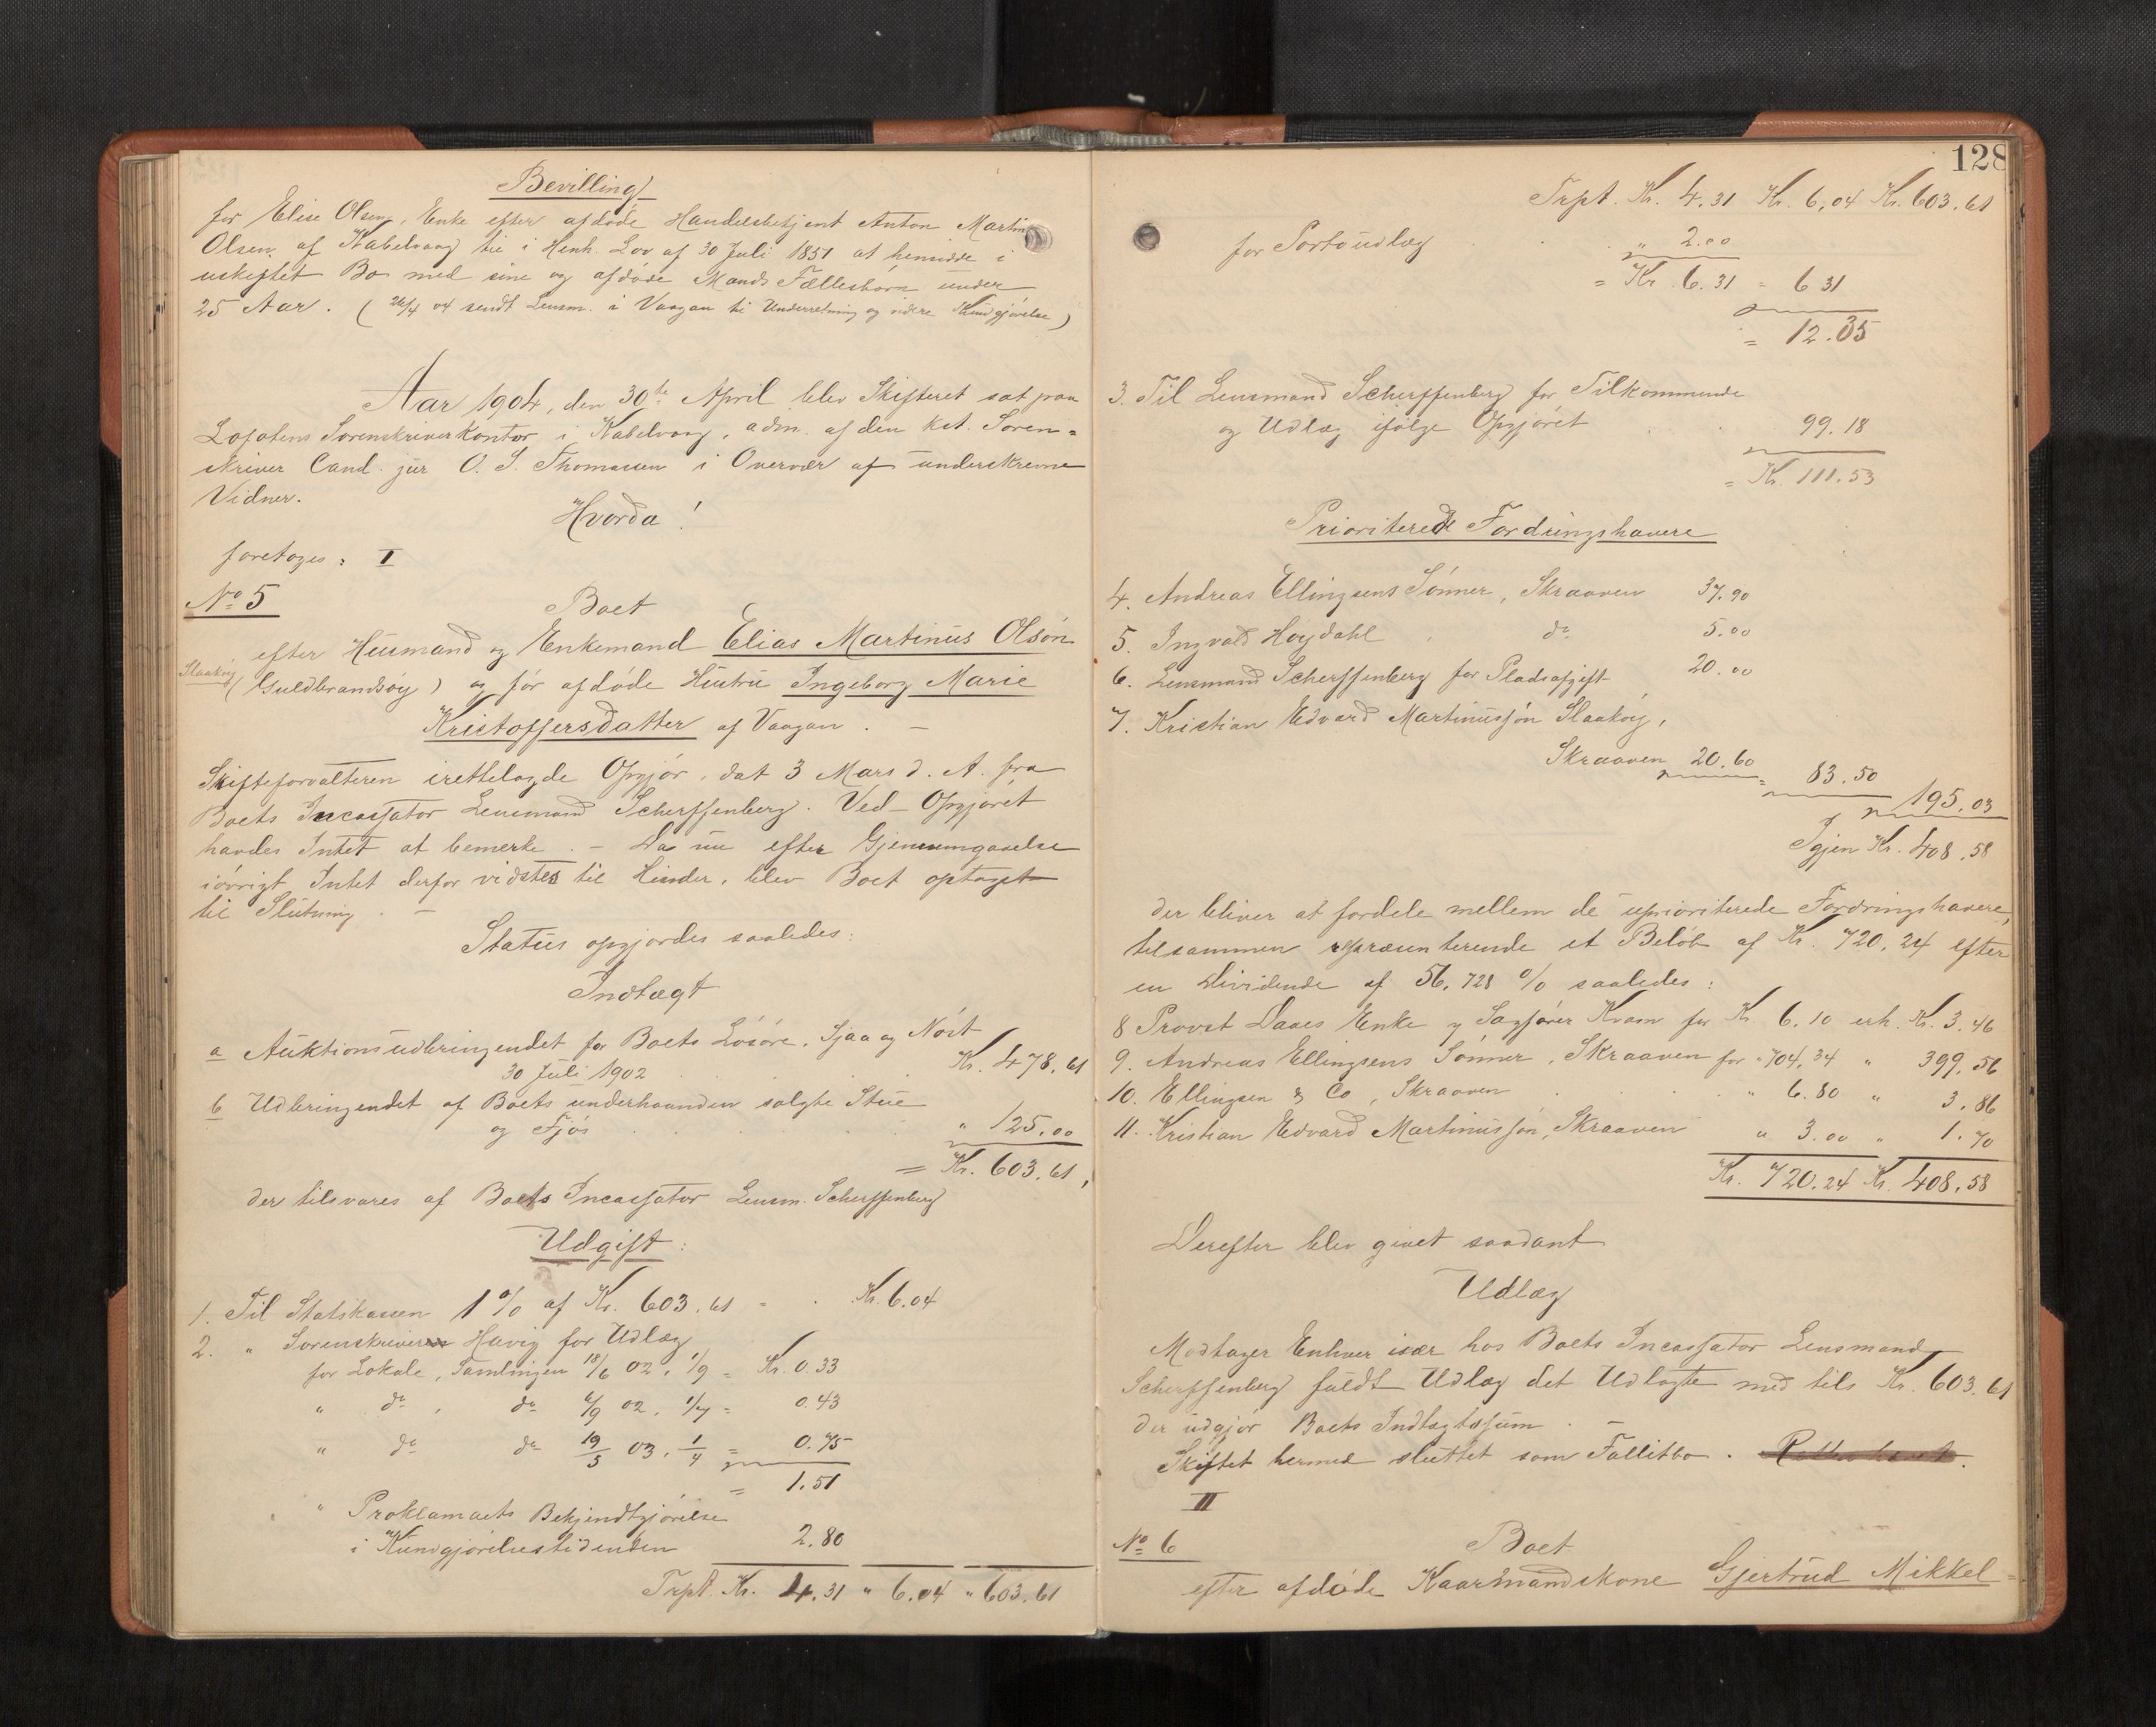 Bevilling
for Elise Olsen, Enke efter afdøde Handelsbetjent Anton Martin
Olsen af Kabelvaag til i Henh. Lov af 30 Juli 1851 at hensidde i
uskiftet Bo med sine og afdøde Mands Fællesbørn under
25 Aar. (26/4 04 sendt Lensm. i Vaagan til Underretning og videre Kundgjørelse)
Aar 1904, den 30te April blev Skifteret sat paa
Lofotens Sorenskriverkontor i Kabelvaag, adm. af den kst. Soren=
skriver Cand. jur O. S. Thomassen i Overvær af underskrevne
Vidner.
Hvorda!
foretoges: I
No 5
Boet
efter Husmand og Enkemand Elias Martinus Olsøn
Slaakøy
(Guldbrandsøy) og før afdøde Hustru Ingeborg Marie
Kristoffersdatter af Vaagan. —
Skifteforvalteren irettelagde Opgjør, dat 3 Mars d. A. fra
Boets Incassator Lensmand Scherffenberg. Ved Opgjøret
havdes Intet at bemerke. — Da nu efter Gjennemgaaelse
iøvrigt Intet derfor vidstes til Hinder, blev Boet optaget
til Slutning. —
Status opgjordes saaledes:
Indtægt
a Auktionsudbringendet for Boets Løsøre, Sjaa og Nøst
30 Juli 1902 . . . Kr. 478.61
b Udbringendet af Boets underhaanden solgte Stue
og Fjøs . . . " 125.00
= Kr. 603.61,
der tilsvares af Boets Incassator Lensm. Scherffenberg
Udgift:
1. Til Statskassen 1 % af Kr. 603.61 = . Kr. 6.04
2. " Sorenskriver Havig for Udlæg
for Lokale, Samlingen 18/6 02, 1/9 = Kr. 0.33
" do , do 6/9 02, 1/7 = 0.43
" do do 19/5 03, 1/4 = 0.75
= 1.51
" Proklamaets Bekjendtgjørelse
i Kundgjørelsestidenden 2.80
Trpt. Kr. 4.31 " 6.04 " 603.61
128
Trpt. Kr. 4.31 Kr. 6.04 Kr. 603.61
for Portoudlæg . . . " 2.00
= Kr. 6.31 = 6 31
= 12.35
3. Til Lensmand Scherffenberg for Tilkommende
og Udlæg ifølge Opgjøret . . 99.18
= Kr. 111.53
Prioriterede Fordringshavere
4. Andreas Ellingsens Sønner, Skraaven 37.90
5. Ingvald Høydahl . do 5.00
6. Lensmand Scherffenberg for Pladsafgift 20.00
7. Kristian Edvard Martinussøn Slaakøy,
Skraaven 20.60
= 83.50
195.03
Igjen Kr. 408.58
der bliver at fordele mellem de uprioriterede Fordringshavere,
tilsammen repræsenterende et Beløb af Kr. 720.24 efter
en Dividende af 56,728 % saaledes:
8 Provst Daaes Enke v Sagfører Kvam for Kr. 6.10 erh. Kr. 3.46
9. Andreas Ellingsens Sønner, Skraaven for " 704.34 " 399.56
10. Ellingsen & Co, Skraaven . . . " 6.80 " 3.86
11. Kristian Edvard Martinussøn, Skraaven " 3.00 " 1.70
Kr. 720.24 Kr. 408.58
Derefter blev givet saadant
Udlæg
Modtager Enhver især hos Boets Incassator Lensmand
Scherffenberg fuldt Udlæg det Udlagte med tils Kr. 603.61
der udgjør Boets Indtægtssum. —
Skiftet hermed sluttet som Fallitbo.
II
No 6
Boet
efter afdøde Kaarmandskone Gjertrud Mikkel=